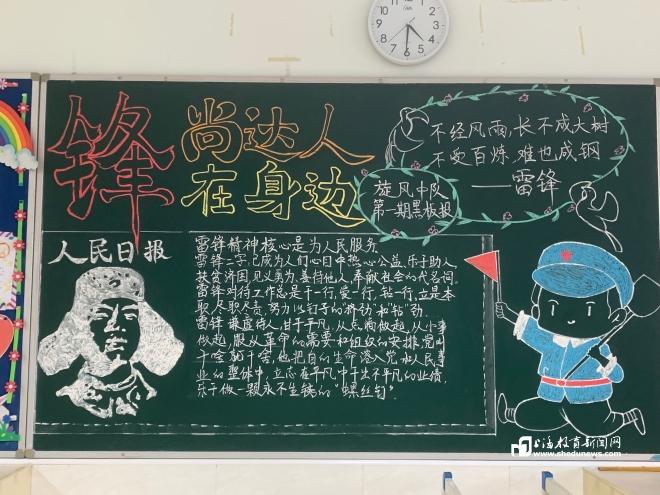 锋
尚达人
在身边
不经风雨,长不成大树
不受百炼,难也成钢
——雷锋
旋风中队
第一期黑板报
人民日报
雷锋精神核心是为人民服务
雷锋二字,已成为人们心目中热心公益,乐于助人,
扶贫济困,见义勇为,善待他人,奉献社会的代名词。
雷锋对待工作总是干一行,爱一行,钻一行,立足本
职,尽职尽责,努力以钉子的"挤劲"和"钻"劲。
雷锋谦虚待人,甘于平凡,从点滴做起,从小事
做起,服从革命的需要和组织的安排,党叫
干会就干会,他把自的生命溶入党和人民事
业的整体中,立志在平凡中干出不平凡的业绩,
乐于做一颗永不生锈的"螺丝钉"。
上海教育新闻网
www.shedunews.com